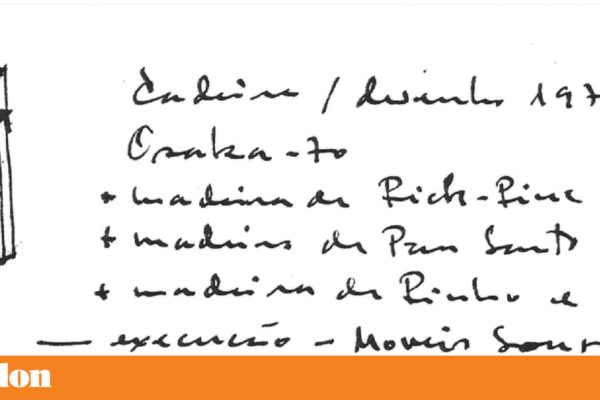 Cadeira / desenho 197
Osaka-70
+ madeira de Rick-Pine
+ madeira de Pau Santo
+ madeira de Pinho e
— execução - Moveis Sous
lon